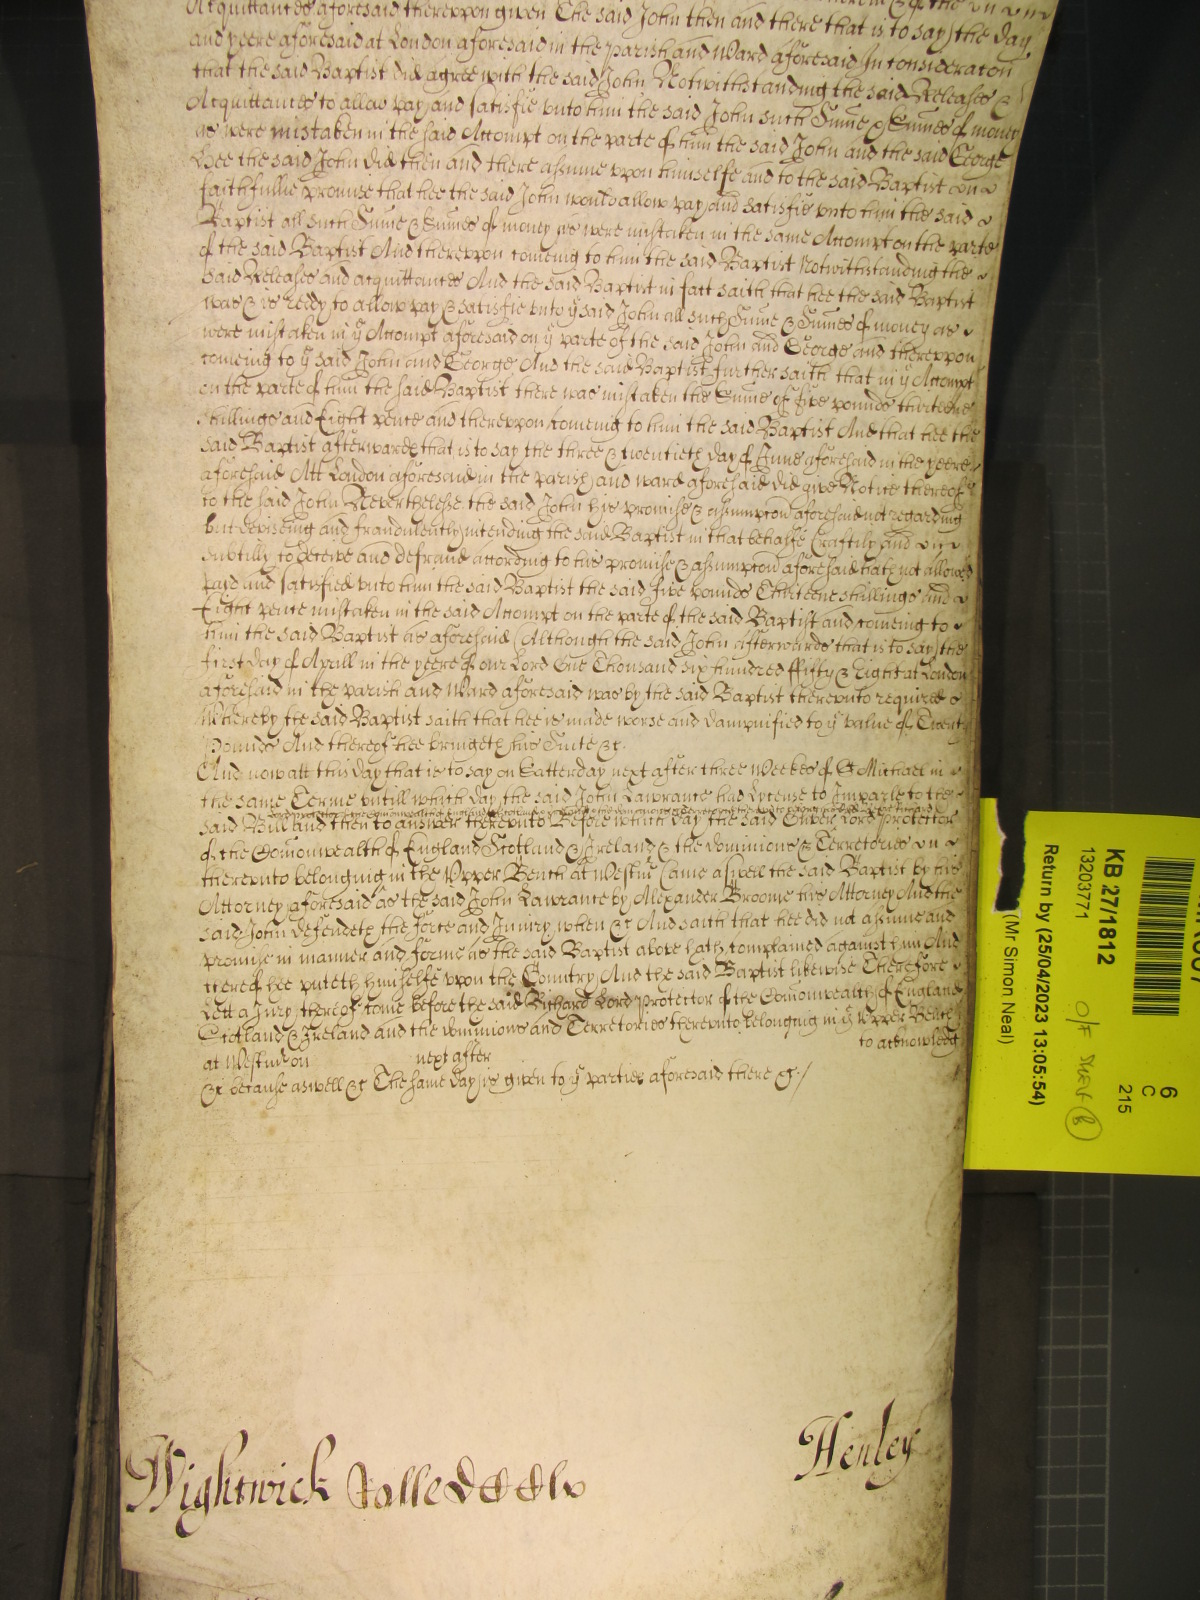 Acquittances aforesaid thereuppon given The said John then and there that is to say the day
and yeere aforesaid at London aforesaid in the parish and Ward aforesaid In consideracon
that the said Baptist did agree with the said John Notwithstanding the said Releases &
Acquittances to allow pay and satisfie unto him the said John such Summe & Summes of money
as were mistaken in the said Accompt on the parte of him the said John and the said George
Hee the said John did then and there assume uppon himselfe and to the said Baptist
faithfullie promise that hee the said John would allow pay and satisfie unto him the said
Baptist all such Summe & Summes of money as were mistaken in the same Accompt on the parte
of the said Baptist And thereuppon comeing to him the said Baptist Notwithstanding the
said Releases and acquittances And the said Baptist in fact saith that hee the said Baptist
was & is ready to allow pay & satisfie unto ye said John all such Summe & Summes of money as
were mistaken in ye Accompt aforesaid on ye parte of the said John and George and thereuppon
comeing to ye said John and George And the said Baptist further saith that in ye Accompt
on the parte of him the said Baptist there was mistaken the Summe of five pounds thirteene
shillings and Eight pence and thereuppon comeing to him the said Baptist And that hee the
said Baptist afterwards that is to say the three & twentieth day of June aforesaid in the yeere
aforesaid Att London aforesaid in the parish and ward aforesaid did give Notice thereof
to the said John Neverthelesse the said John his promise & assumpcon aforesaid not regarding
but deviseing and fraudulently intending the said Baptist in that behalfe Craftily and
subtilly to deceive and defraud according to his promise & assumpcon aforesaid hath not allowed
paid and satisfied unto him the said Baptist the said five pounds Thirteene shillings and
Eight pence mistaken in the said Accompt on the parte of the said Baptist and comeing to
him the said Baptist as aforesaid Although the said John afterwards that is to say the
first day of Aprill in the yeere of our Lord One Thousand six hundred ffifty & Eight at London
aforesaid in the parish and Ward aforesaid was by the said Baptist thereunto required
Whereby the said Baptist saith that hee is made worse and dampnified to ye value of Twenty
Pounds And thereof hee bringeth his Suite &c.
And now att this day that is to say on Satterday next after three Weekes of St Michael in
the same Terme untill which day the said John Lawrance had Lycense to Imparle to the
said Bill and then to answer thereunto Before which day the said Oliver Lord Protector
of the Comonwealth of England Scotland & Ireland & the dominions & Territories
thereunto belonging in the Upper Bench at Westmr Came aswell the said Baptist by his
Attorney aforesaid as the said John Lawrance by Alexander Broome his Attorney And the
said John defendeth the force and Iniury when &c And saith that hee did not assume and
promise in manner and forme as the said Baptist above hath complained against him And
thereof hee putteth himselfe uppon the Country And the said Baptist likewise Therefore
Lett a Jury thereof come before the said Richard Lord Protector of the Comonwealth of England
Scotland & Ireland and the dominions and Territories thereunto belonging in ye Upper Bench
at Westm on next after to acknowledg
&c because aswell &c The same day is given to ye parties aforesaid there &c
Wightwick
Henley
KB 27/1812
13203771
Return by (25/04/2023 13:05:54)
(Mr Simon Neal)
6
C
215